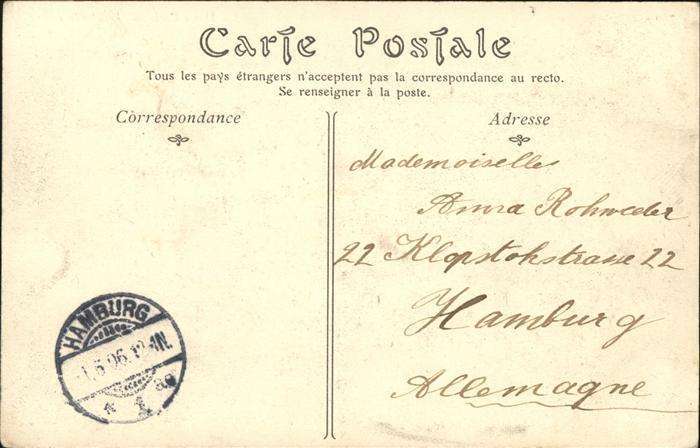 Carte Postale
Tous les pays étrangers n'acceptent pas la correspondance au recto.
Se renseigner à la poste.
Correspondance
Adresse
Mademoiselle
Anna Rohweder
22 Klopstokstrasse 22
Hamburg
Allemagne
HAMBURG
1.5.06.12-1N.
* 1